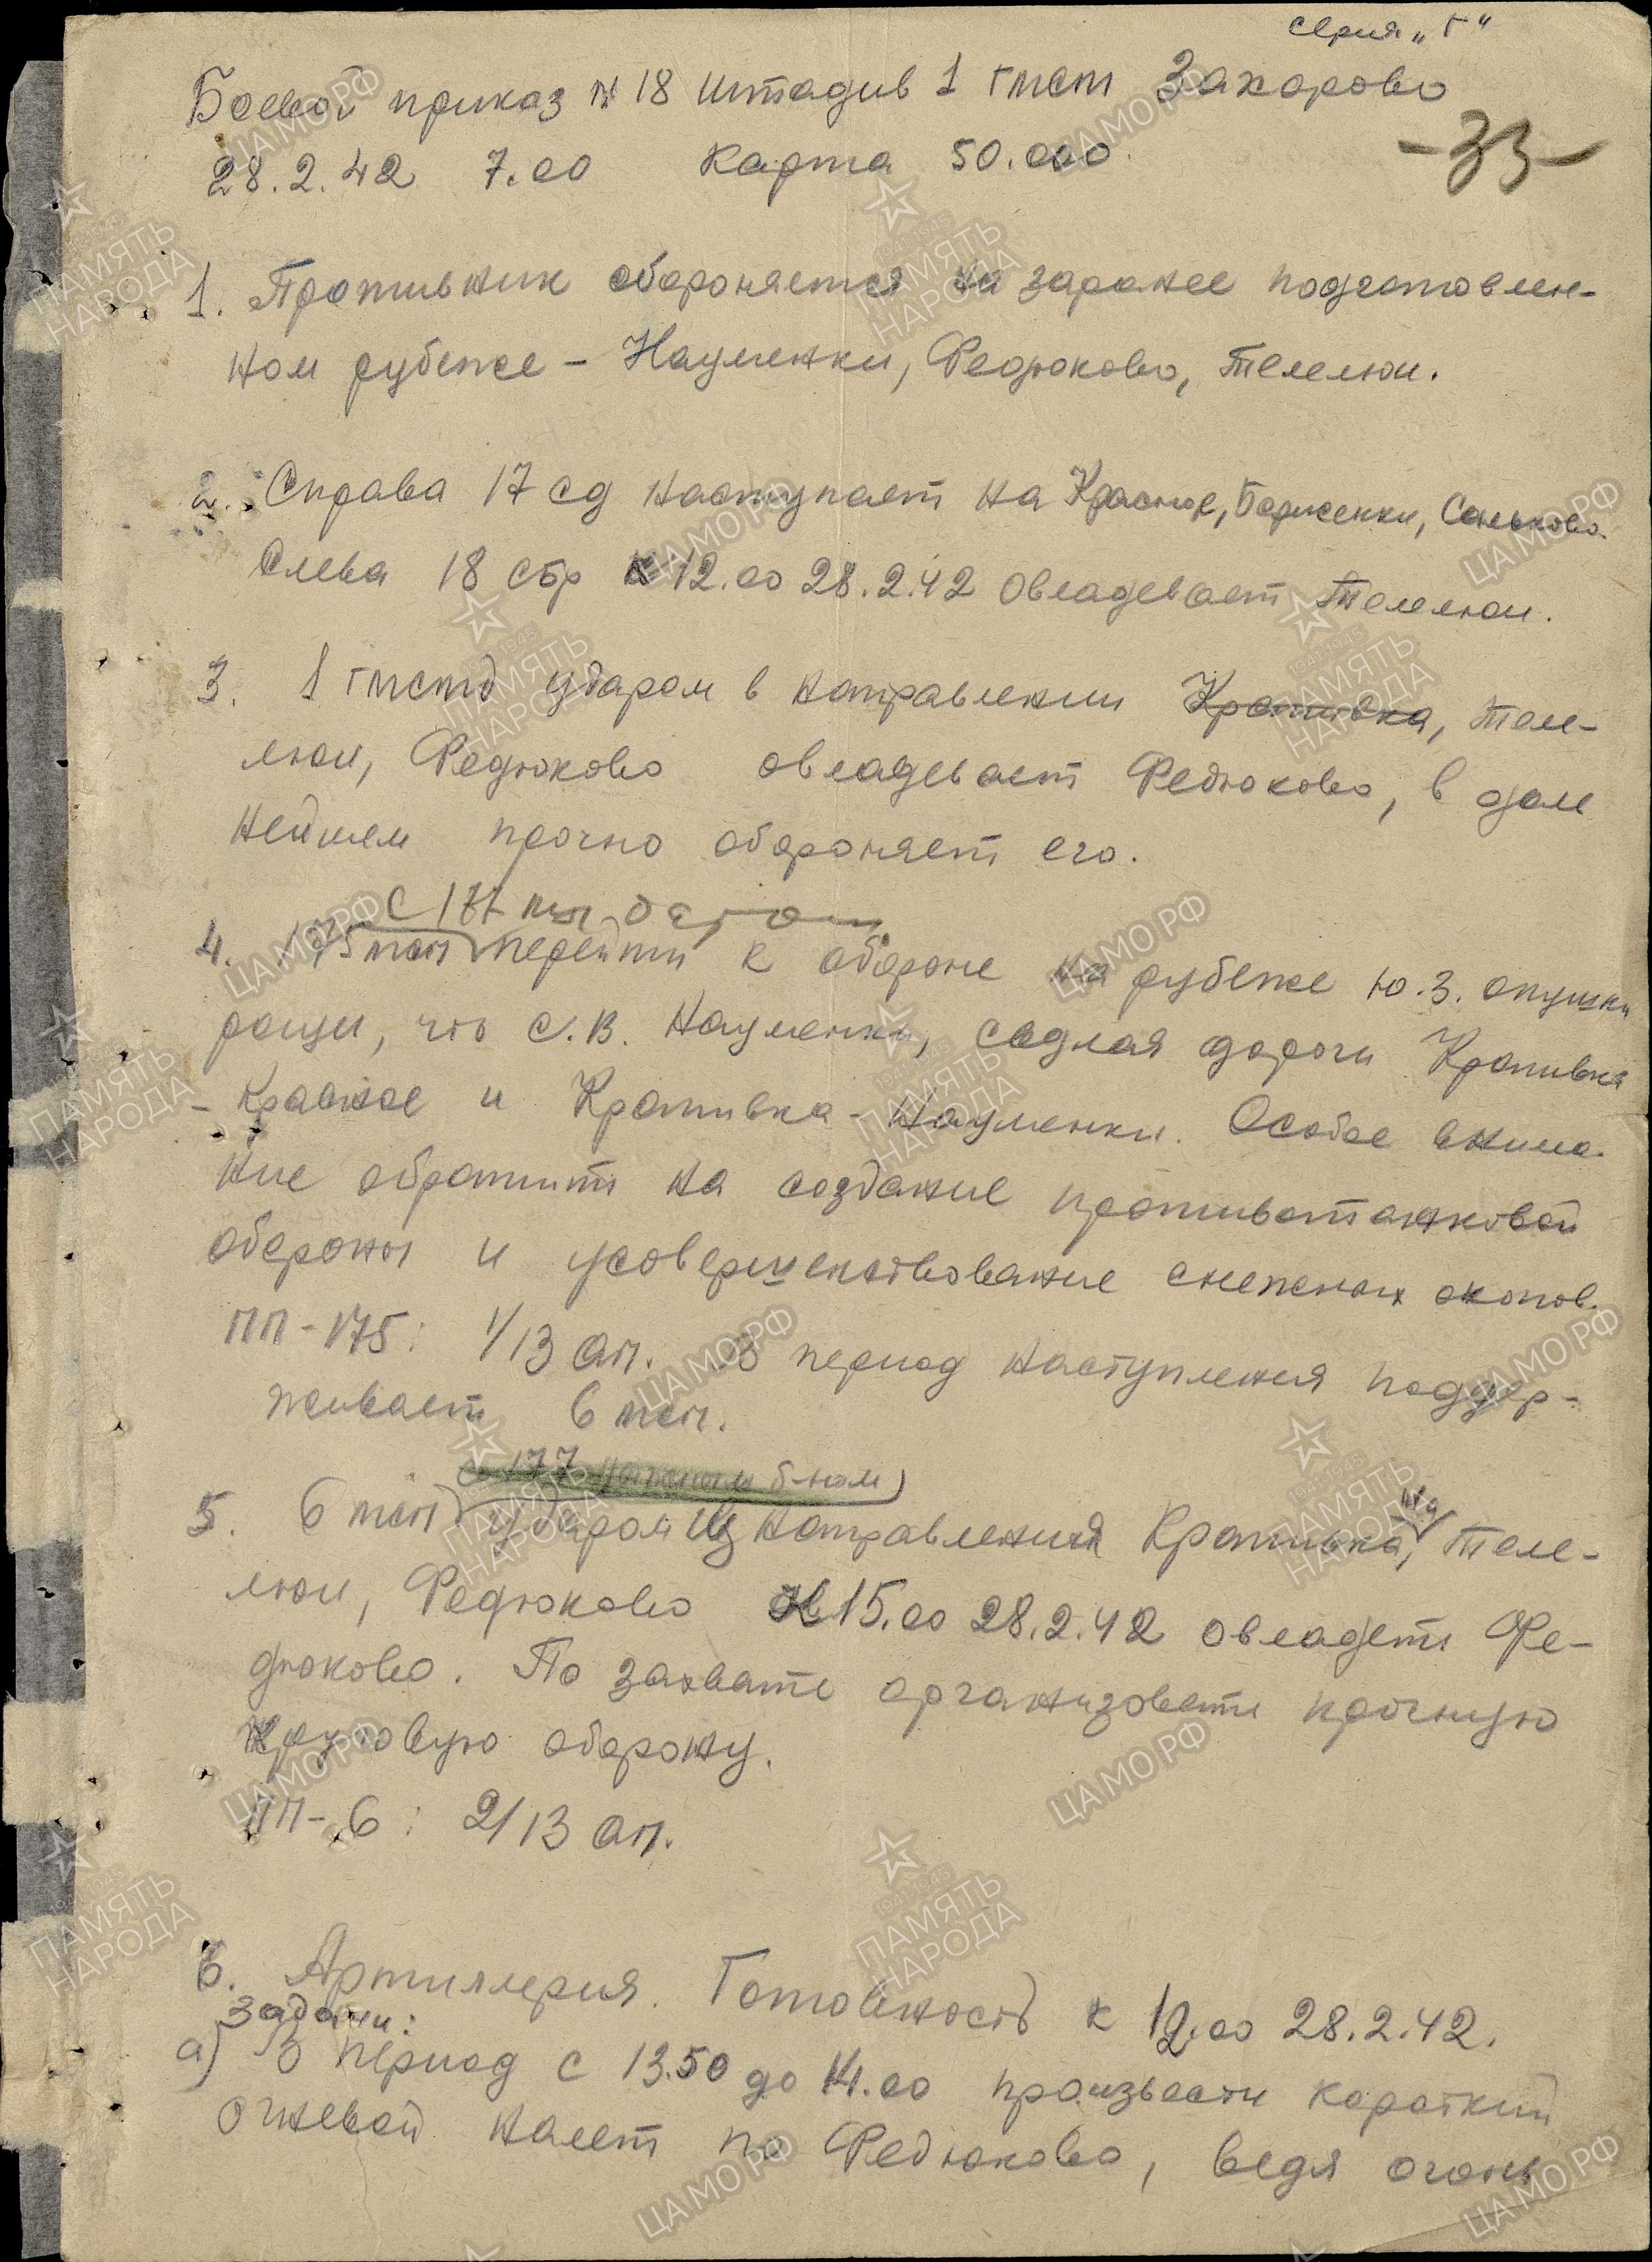 серия „Г"
Боевой приказ № 18 штадив 1 гмсд Захарово
28.2.42 7.00 Карта 50.000
-33-
1. Противник обороняется на заранее подготовлен-
ном рубеже – Науменки, Федюково, Телелюи.
2. Справа 17 сд наступает на Красное, Борисенки, Саньково.
Слева 18 сбр к 12.00 28.2.42 овладевает Телелюи.
3. 1 гмсд ударом в направлении Крапивка, Теле-
люи, Федюково овладевает Федюково, в даль
нейшем прочно обороняет его.
с 177
4. 175 мсп перейти к обороне на рубеже ю.з. опушки
рощи, что с.в. Науменки, седлая дороги Крапивка
- Красное и Крапивка - Науменки. Особое внима-
ние обратить на создание противотанковой
обороны и усовершенствование снежных окопов.
ПП-175: 1/13 ап. В период наступления поддер-
живает 6 мсп.
с 177 б-ном
5. 6 мсп ударом из направления Крапивка, Теле-
люи, Федюково к 15.00 28.2.42 овладеть Фе-
дюково. По захвате организовать прочную
круговую оборону.
ПП-6: 2/13 ап.
6. Артиллерия. Готовность к 12.00 28.2.42.
Задачи:
а) В период с 13.50 до 14.00 произвести короткий
огневой налет по Федюково, ведя огонь
ПАМЯТЬ НАРОДА
ЦАМО.РФ